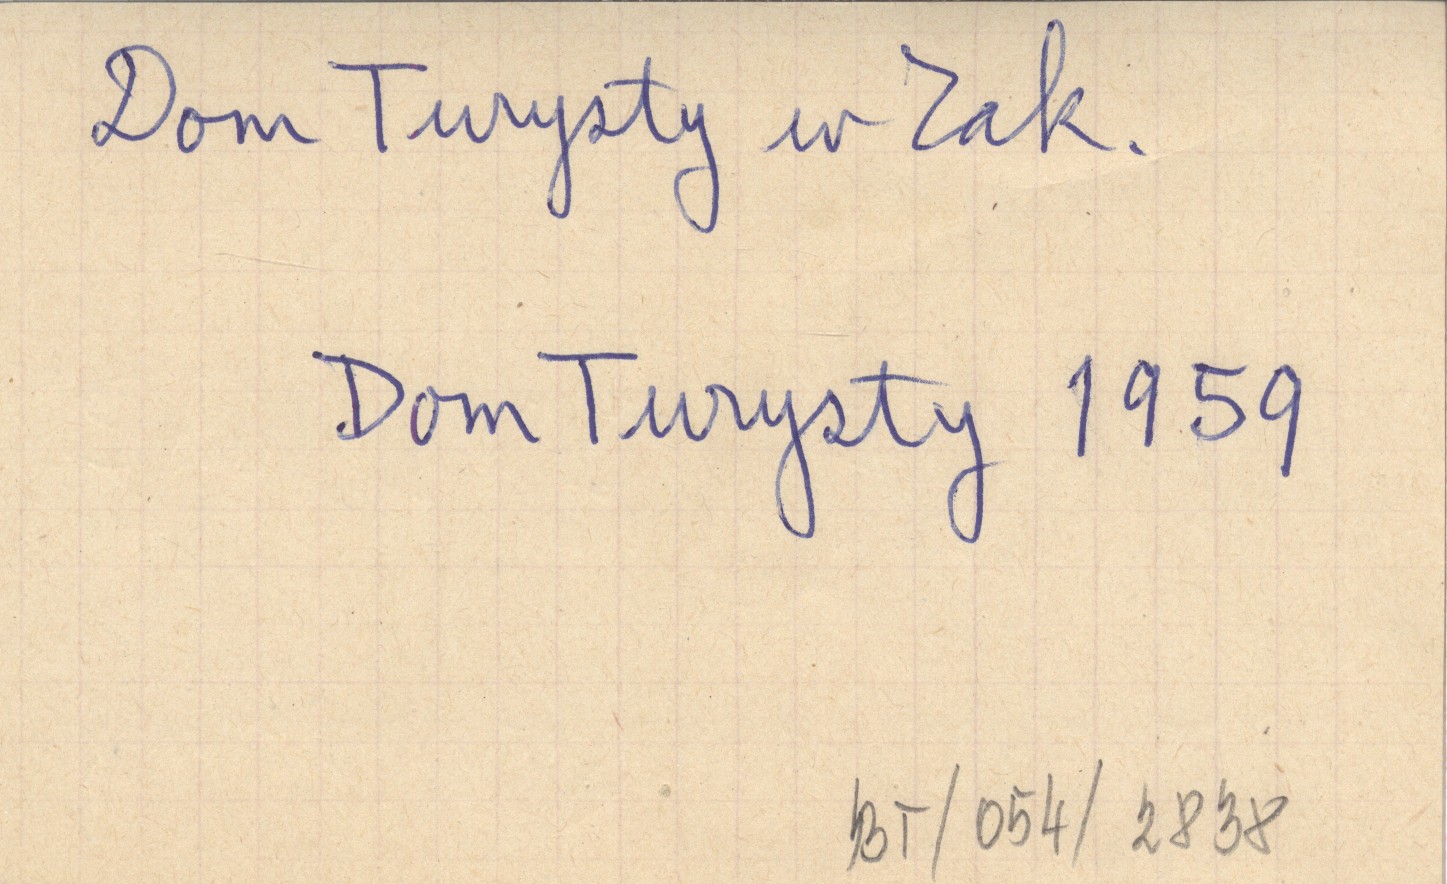 Dom Turysty w Zak.
Dom Turysty 1959
BT/054/2838